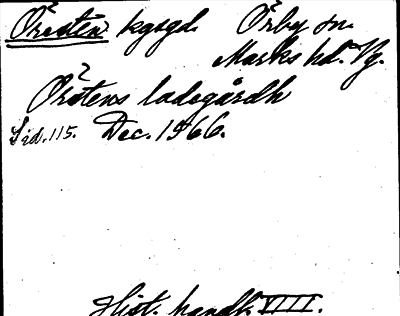 Öresten kgsgd. Örby sn.
Marks hd. Vg.
Örstens ladegårdh
Sid. 115. Dec. 1566.
Hist. handl. VIII.